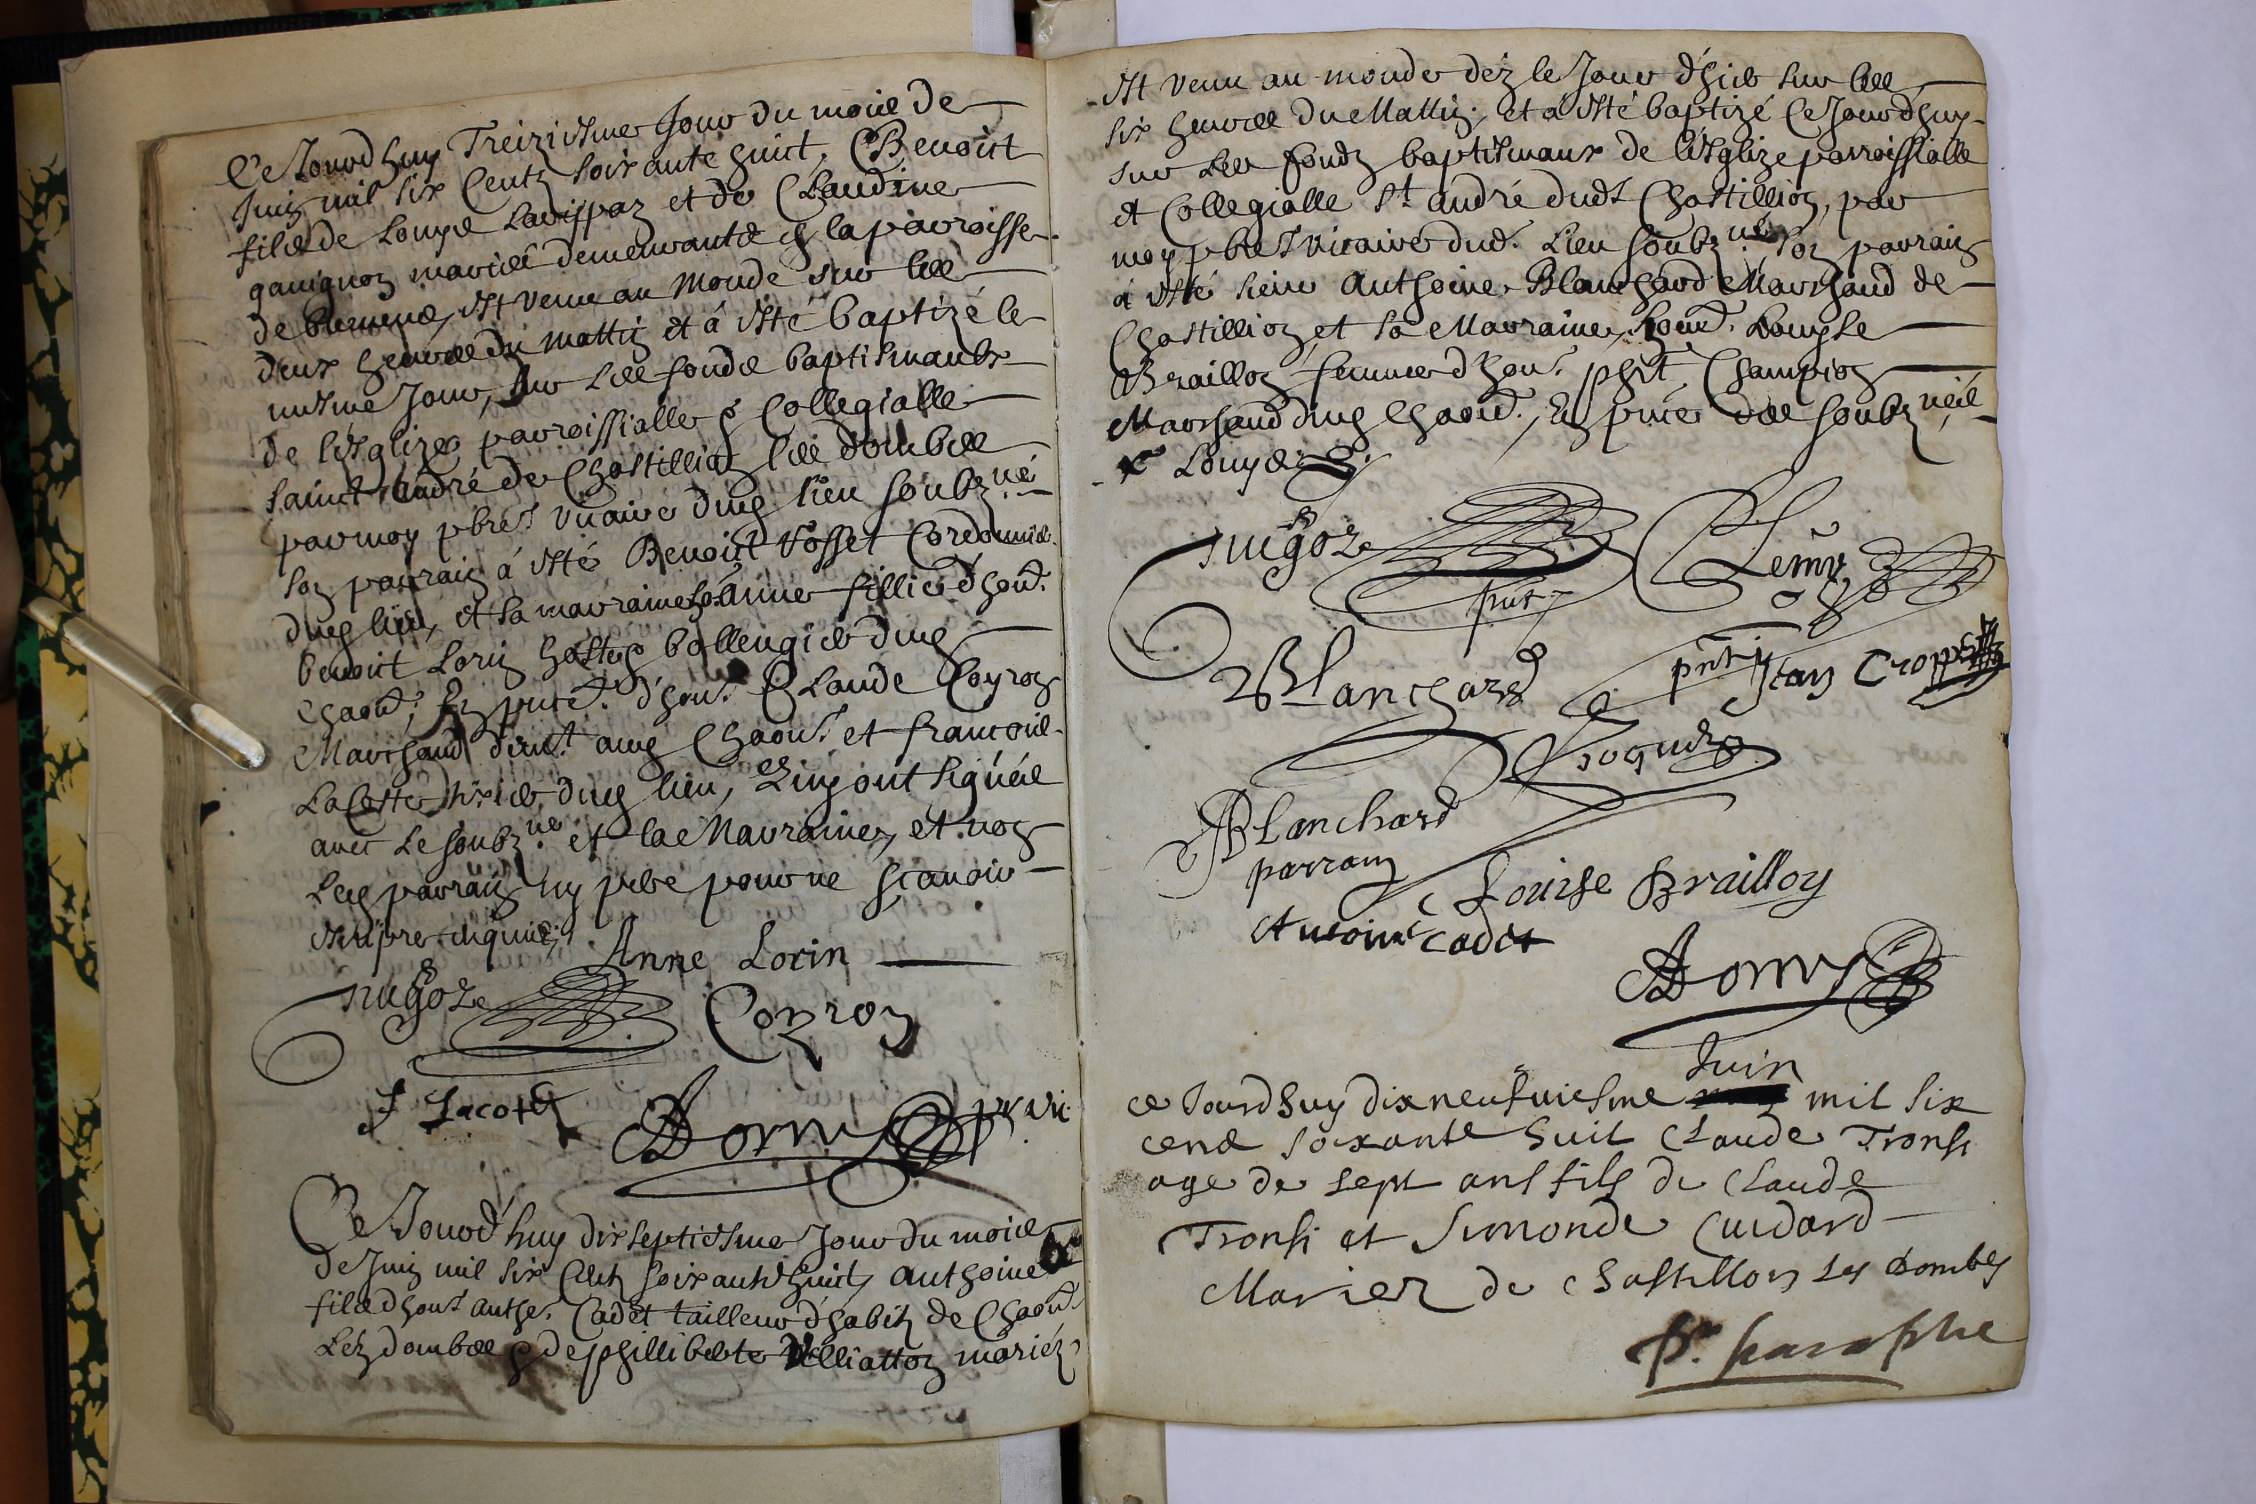 Ce Jourd'huy Treiziesme Jour du mois de
Juing mil six Centz soixante huict, Benoist
filz de Louys Lavispaz et de Claudine
gauignon mariés demeurants en la parroisse
de buenens, est venu au monde sur les
deux heures du mattin et a esté baptizé le
mesme Jour, sur les fonds baptismaulx
de l'Esglize parroissialle & Collegialle
sainct André de Chastillion les dombes
par moy pbre vicaire dud lieu soubzné
son parrain a esté Benoist Vosset Cordonnier
dud lieu, et sa marraine Anne fillie d'hon.
benoist Lorin hoste & bollengier dud
Chaon; En pnce. d'hon. Claude Coyron
Marchand aud Chaon et francois
Lacotte dud lieu, qui ont signés
avec Le soubzné et la Marraine, et non
Led parrain ny pere pour ne scavoir
escripre enquis.
Anne Lorin
nugoz
Coyron
f Lacotte
ADornes pr vic
Ce Jourd'huy dix septiesme Jour du mois
de Juing mil six Centz soixante huict, Anthoine
filz d'hon. anthe. Cadet tailleur d'habitz de Chaon.
Lez dombes & de phillibete Velliatton mariéz
est venu au monde déz le Jour d'hier sur les
six heures du Mattin; et a esté baptizé Ce Jourd'huy
sur Les fondz baptismaux de l'Esglize parroissialle
et Collegialle St. André dudt Chastillion, par
moy pbre vicaire dud. Lieu soubzné. son parrain
a esté sieur Anthoine Blanchard Marchand de
Chastillion et sa Marraine, hond. Louyse
Braillon femme d'hon. phit Champion
Marchand dud Chaond., En pnce des soubznés
Louys
nugoz
pnt
Blanchard
pnt
Jean Cropet
ABlanchard
parrain
Louise Brailloy
Antoine Cadet
ADornes
ce Jourdhuy dixneufuiesme Juin mil six
cens soixante huit Claude Tronsi
age de sept ans fils de Claude
Tronsi et Simonde Cuidard
Mariez de Chastillon les Dombes
p. paraphe